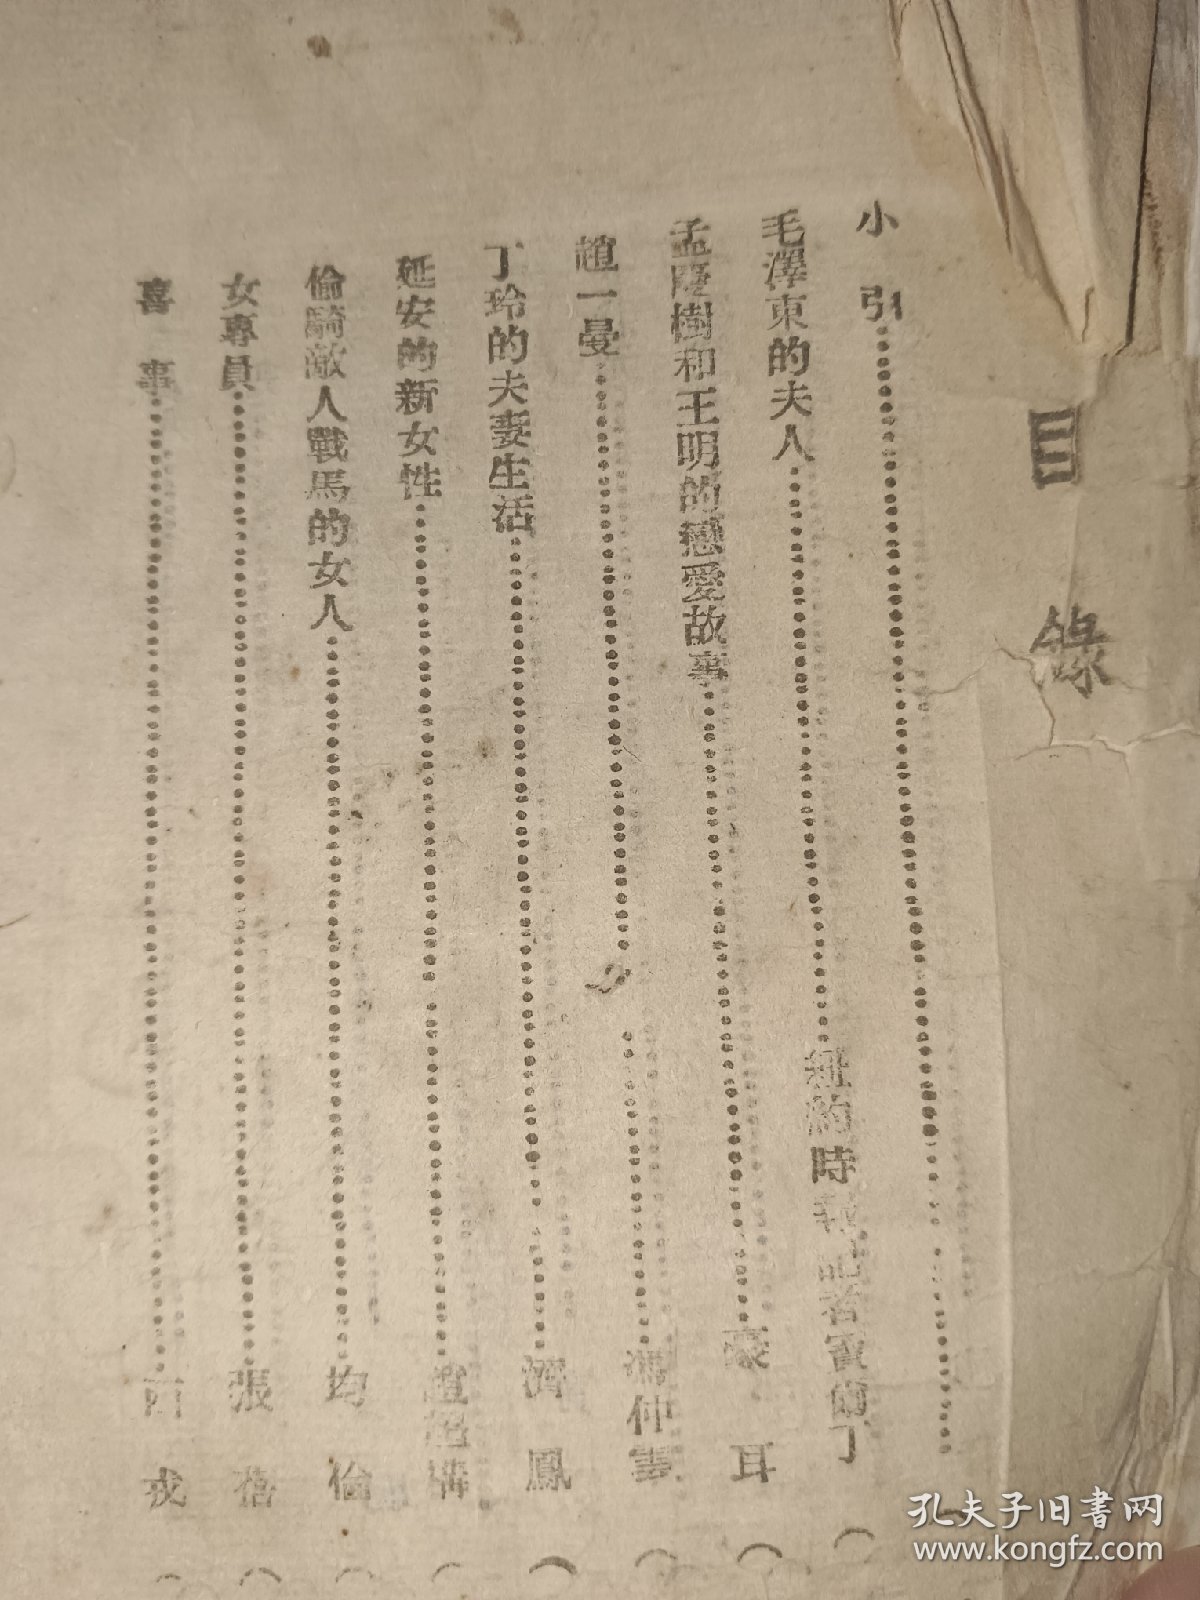 目錄
小引
毛澤東的夫人 紐約時報記者竇爾丁
孟慶樹和王明的戀愛故事 豪耳
趙一曼 馮仲雲
丁玲的夫妻生活 濟鳳
延安的新女性 趙超構
偷騎敵人戰馬的女人 均倫
女專員 張蓓
喜事 西戎
孔夫子旧书网
www.kongfz.com